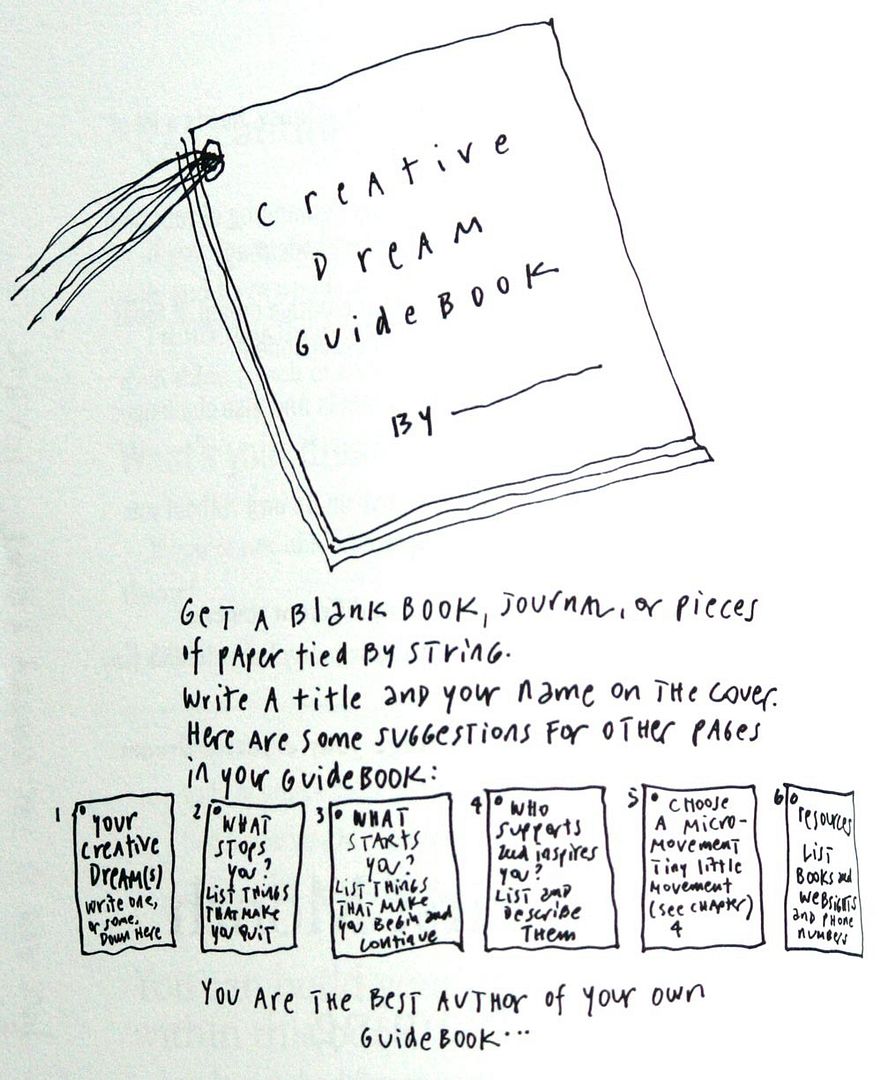 Creative
Dream
Guidebook
By
Get a blank book, journal, or pieces
of paper tied by string.
Write a title and your name on the cover.
Here are some suggestions for other pages
in your guidebook:
1
Your
Creative
Dream(s)
Write one,
or some,
down here
2
What
stops
you?
List things
that make
you quit
3
What
starts
you?
List things
that make
you begin and
continue
4
Who
supports
and inspires
you?
List and
describe
them
5
Choose
a micro-
movement
tiny little
movement
(see chapter)
4
6
resources
List
books and
websights
and phone
numbers
You are the best author of your own
guidebook...